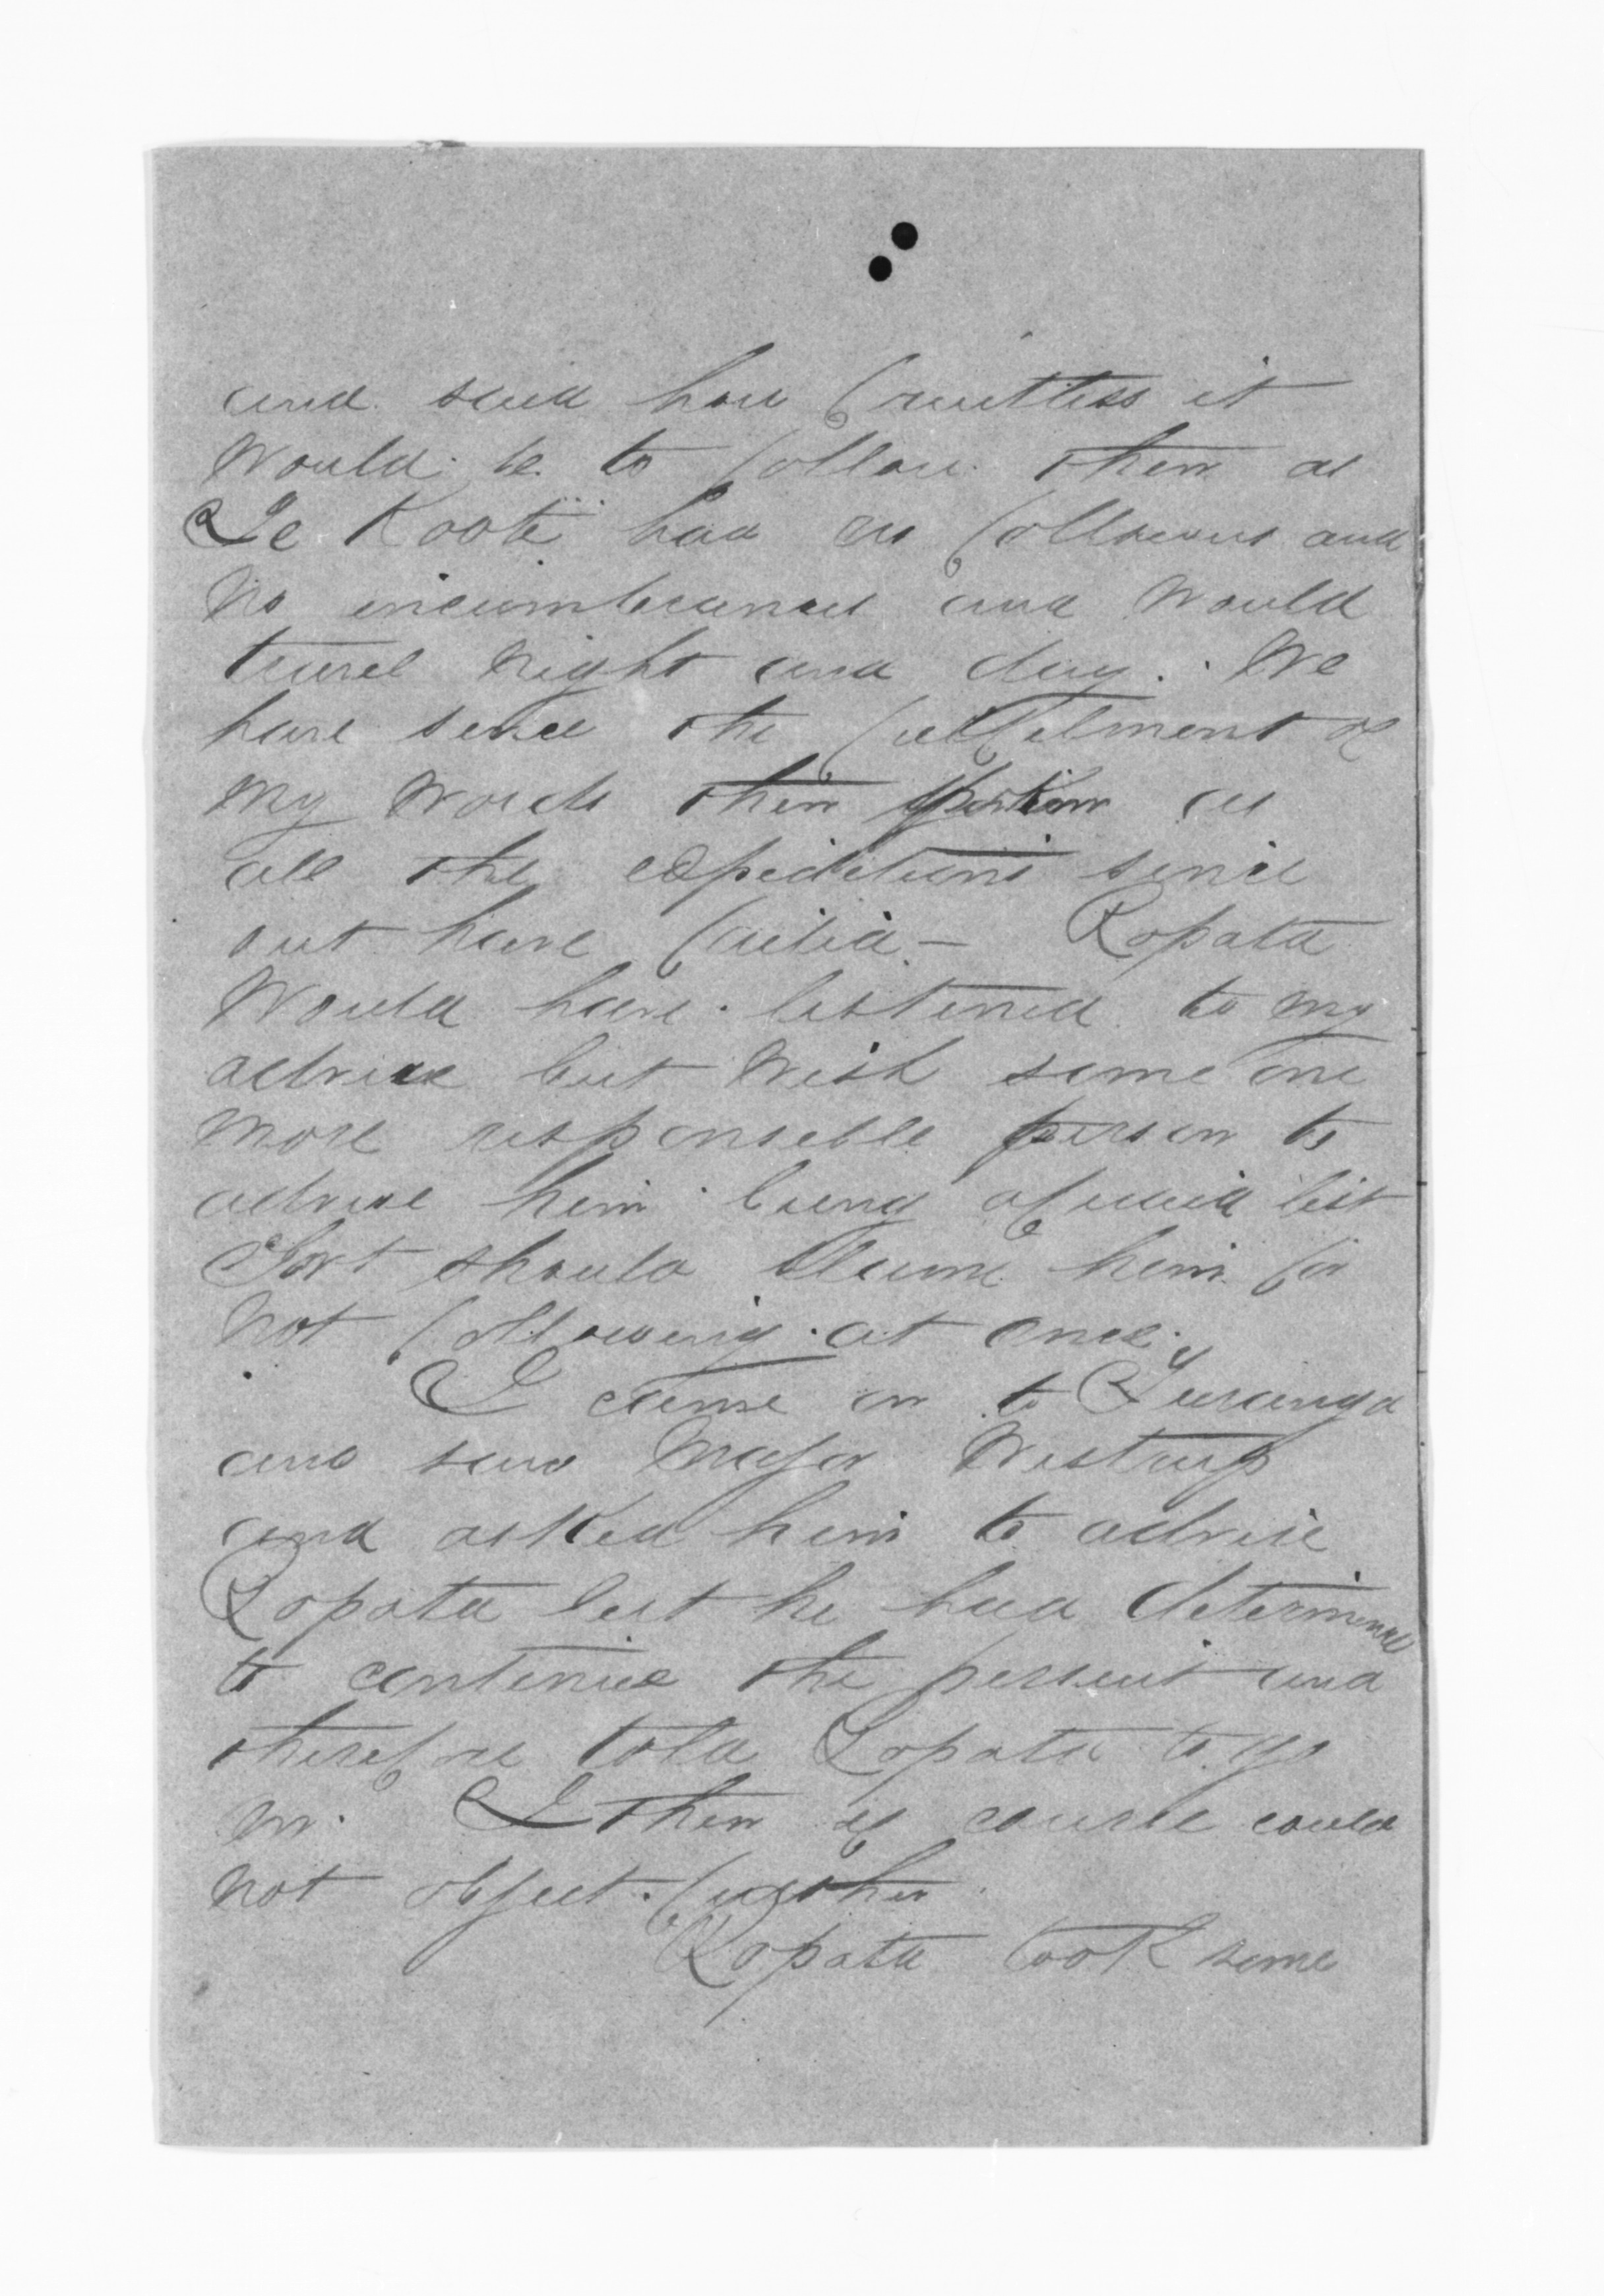 and said how fruitless it
would be to follow them as
Te Kooti had no followers and
no incumbrances and would
travel night and day. We
have seen the fulfilment of
my words then spoken as
all the expeditions since
out have failed — Ropata
would have listened to my
advice but wish some one
more responsible person to
advise him being afraid lest
Govt should blame him for
not following at once.
I came on to Turanga
and saw Major Westrup
and asked him to advise
Ropata but he had determined
to continue the pursuit and
therefore told Ropata to go
on. I then of course could
not object further.
Ropata took some